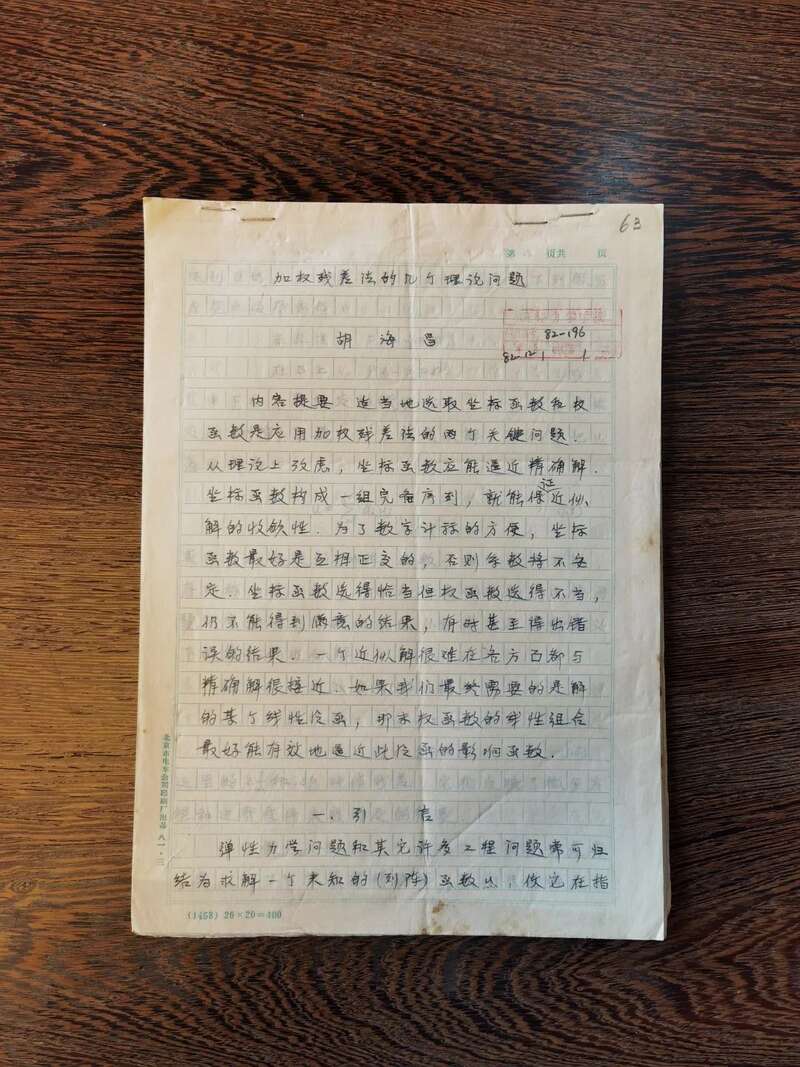 63
第 页共 页
加权残差法的几个理论问题
胡海昌
82-196
82-12-1
内容提要 适当地选取坐标函数和权
函数是应用加权残差法的两个关键问题.
从理论上考虑，坐标函数应能逼近精确解.
坐标函数构成一组完备序列，就能保证近似
解的收敛性.为了数字计标的方便，坐标
函数最好是互相正交的，否则系数将不各
定.坐标函数选得恰当但权函数选得不当，
仍不能得到满意的结果，有时甚至得出错
误的结果.一个近似解很难在各方面都与
精确解很接近.如果我们最终需要的是解
的某个线性泛函，那末权函数的线性组合
最好能有效地逼近此泛函的影响函数.
一.引 言
弹性力学问题和其它许多工程问题常可归
结为求解一个未知的(列阵)函数u，使它在指
北京市电车公司印刷厂出品 八一·三
(1458) 20×20=400